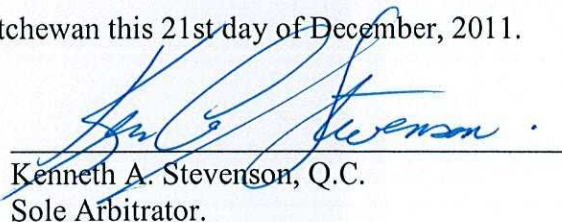 tchewan this 21st day of December, 2011.
Kenneth A. Stevenson, Q.C.
Sole Arbitrator.